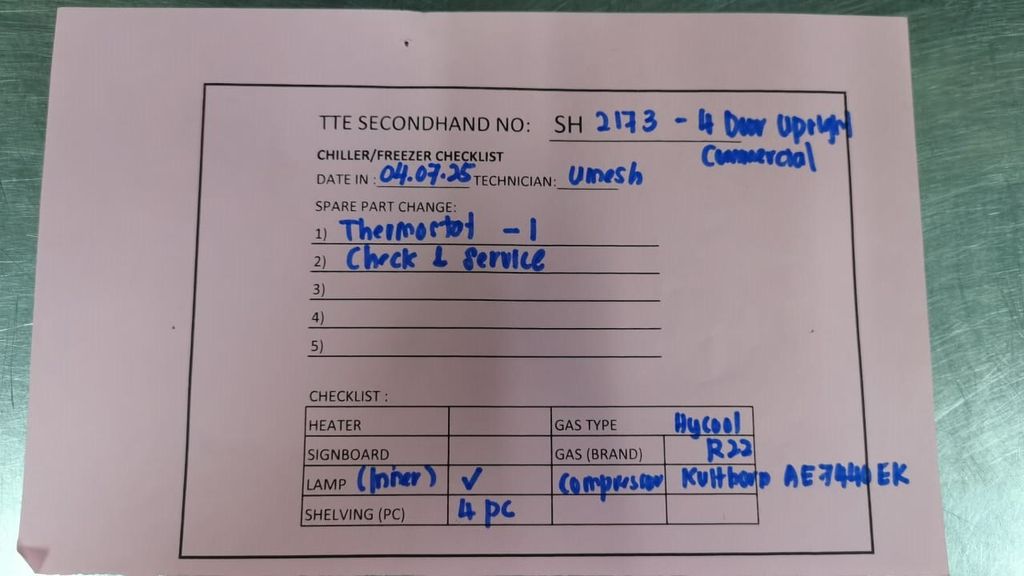 TTE SECONDHAND NO: SH 2173 - 4 Door Upright
Commercial
CHILLER/FREEZER CHECKLIST
DATE IN : 04.07.25 TECHNICIAN: Umesh
SPARE PART CHANGE:
1) Thermostat - 1
2) Check & Service
3)
4)
5)
CHECKLIST :
HEATER GAS TYPE Hycool
SIGNBOARD GAS (BRAND) R22
LAMP (Inner) ✓ Compressor AE7440EK
SHELVING (PC) 4 pc